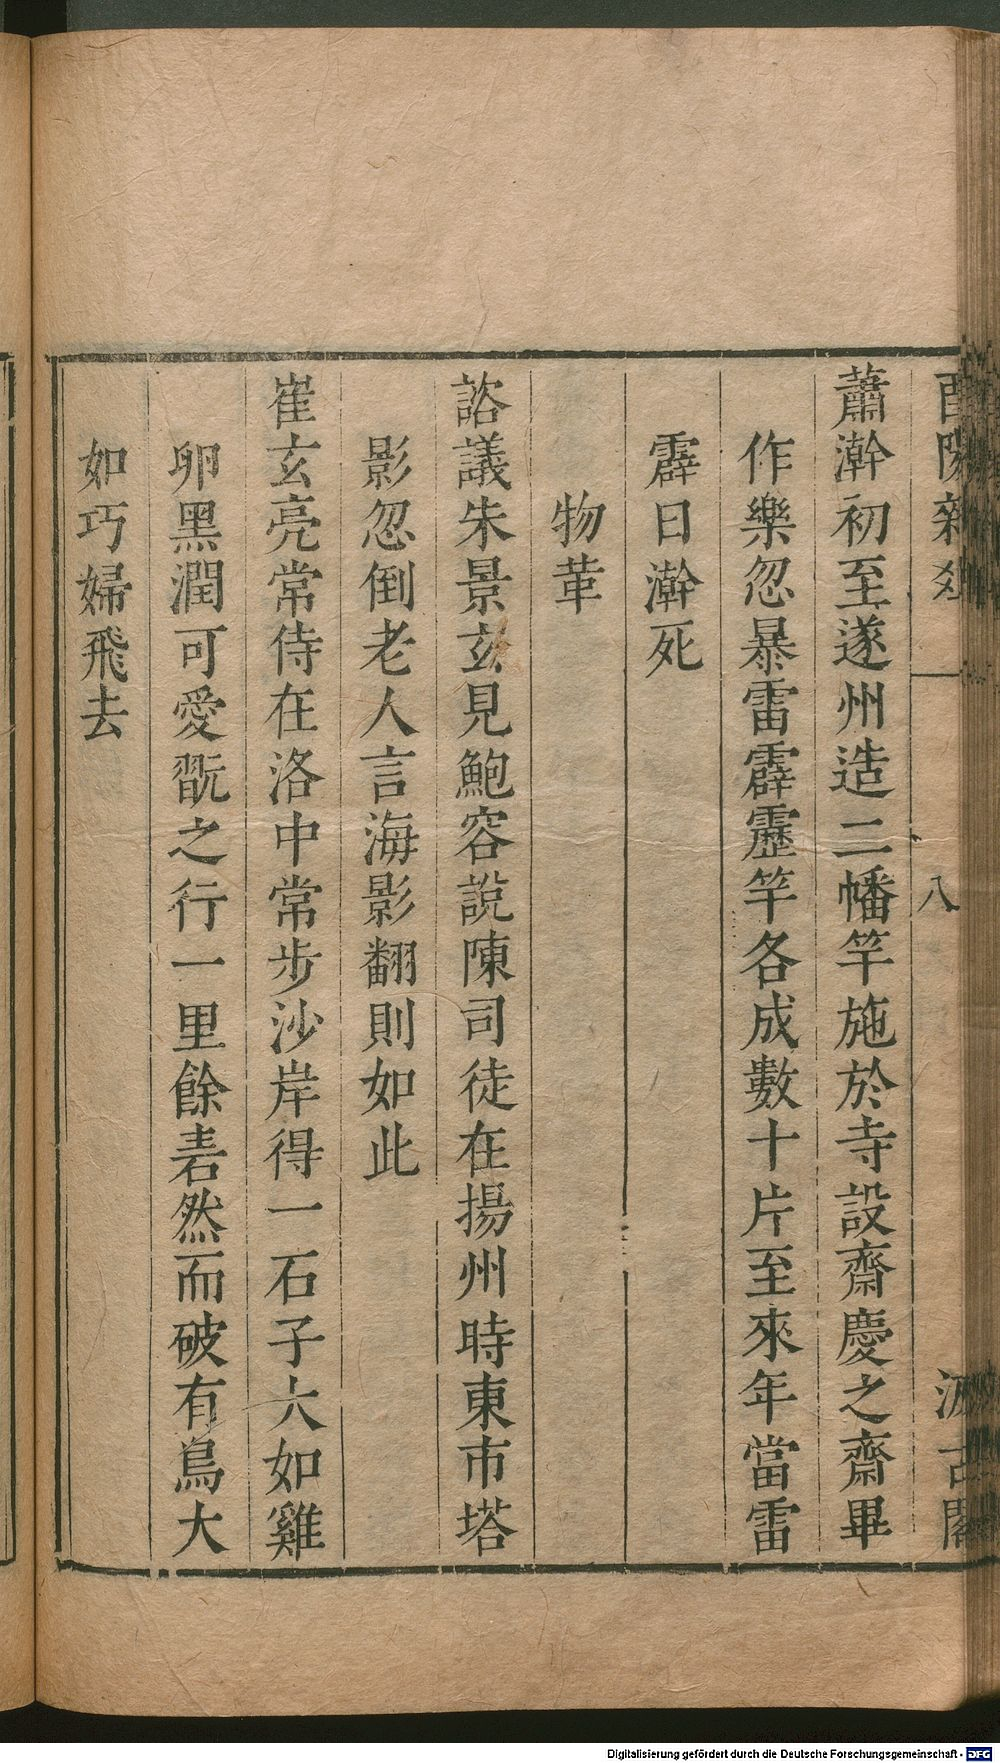 酉陽雜俎
八
汲古閣
蕭澣初至遂州造二幡竿施於寺設齋慶之齋畢
作樂忽暴雷霹靂竿各成數十片至來年當雷
霹日澣死
物革
諮議朱景玄見鮑容說陳司徒在揚州時東市塔
影忽倒老人言海影翻則如此
崔玄亮常侍在洛中常步沙岸得一石子大如雞
卵黑潤可愛翫之行一里餘砉然而破有鳥大
如巧婦飛去
Digitalisierung gefördert durch die Deutsche Forschungsgemeinschaft - DFG